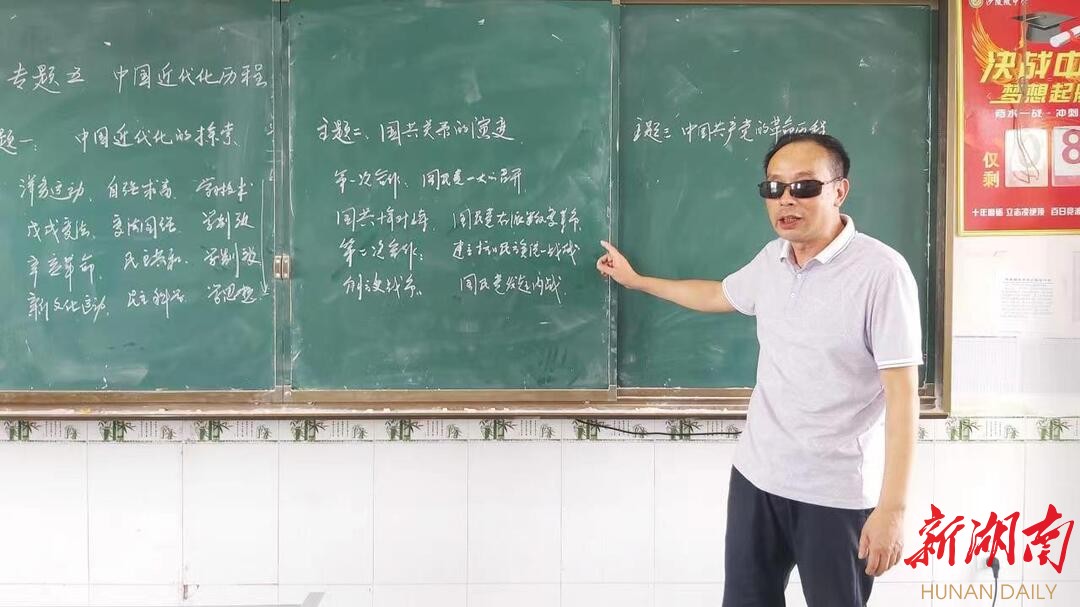 专题五 中国近代化历程
题一、中国近代化的探索
洋务运动、自强求富 学技术
戊戌变法、变法图强 学制度
辛亥革命、民主共和、学制度
新文化运动、民主科学 学思想
主题二、国共关系的演变
第一次合作、国民党一大召开
国共十年对峙、国民党右派叛变革命
第二次合作：建立抗日民族统一战线
解放战争、国民党发起内战
主题三 中国共产党的革命历程
沙陂陂中
决战中
梦想起
仅剩
8
十年磨砺 立志凌绝顶 百日竞渡
新湖南
HUNAN DAILY